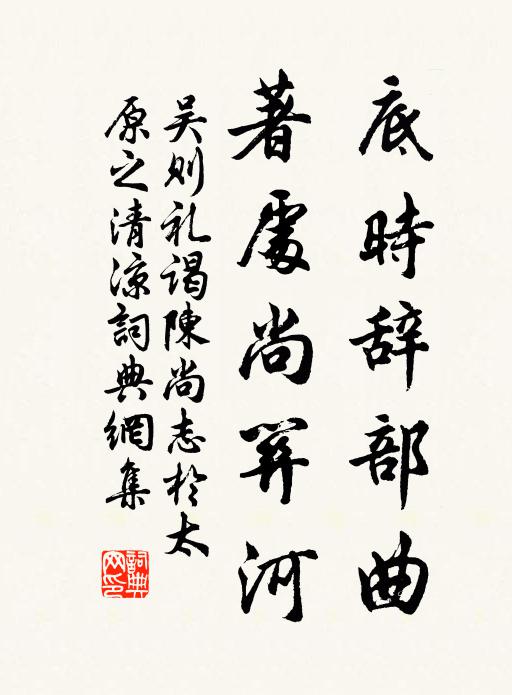 底時辞部曲
著處尚關河
吴则礼謁陳尚志於太
原之清涼詞典網集
詞典
网印